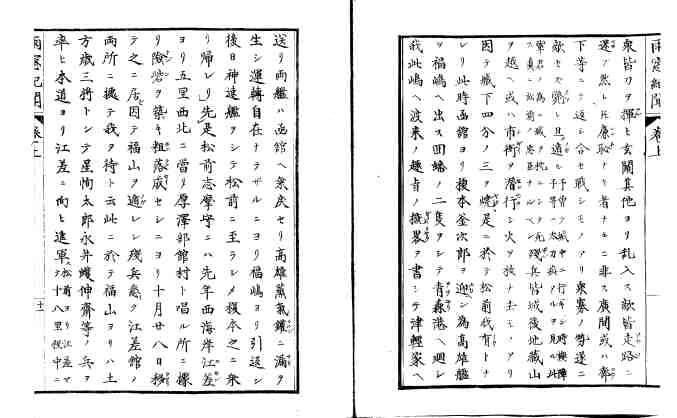 雨窓紀聞 卷上
衆皆刀ヲ揮ヒ玄関其他ヨリ乱入ス敵皆走路ニ
迷フ然トモ廉恥アリ者ナキニ非ス廣間或ハ
下等ニテ返シ合セ戰シモノアリ
ヲ越ヘ或ハ市街ヲ潜行シ火ヲ放チ去モノアリ
因テ城下四分ノ三ヲ焼是ニ於テ松前我有トナ
レリ此時函館ヨリ榎本釜次郎ヲ迎シ為高雄艦
ヲ福嶋ヘ出ス回蟠ノ二隻ヲシテ青森港ヘ廻シ
我此嶋ヘ渡来ノ趣旨ノ概畧ヲ書シテ津輕家ヘ
送リ両艦ハ函館ヘ衆戻セリ高雄蒸氣鑵ニ漏ヲ
生シ運轉自在ナラザルニヨリ福嶋ヨリ引返シ
後日神速艦ヲシテ松前ニ至ラシメ榎本之ニ衆
リ帰レリ先是松前志摩守ニハ先年西海岸江差
ヨリ五里西北ニ當リ厚澤部館村ト唱ル所ニ據
リ險砦ヲ築キ粗落成セシニヨリ十月廿八日移
テ之ニ居因テ福山ヲ遁レシ残兵悉ク江差館ノ
両所ニ機テ我ヲ待ト云此ニ於テ福山ヨリハ土
方歳三将トシテ星恂太郎永井蠖伸齋等ノ兵ヲ
率ヒ本道ヨリ江差ニ向ヒ進軍
雨窓紀聞 卷上
十一